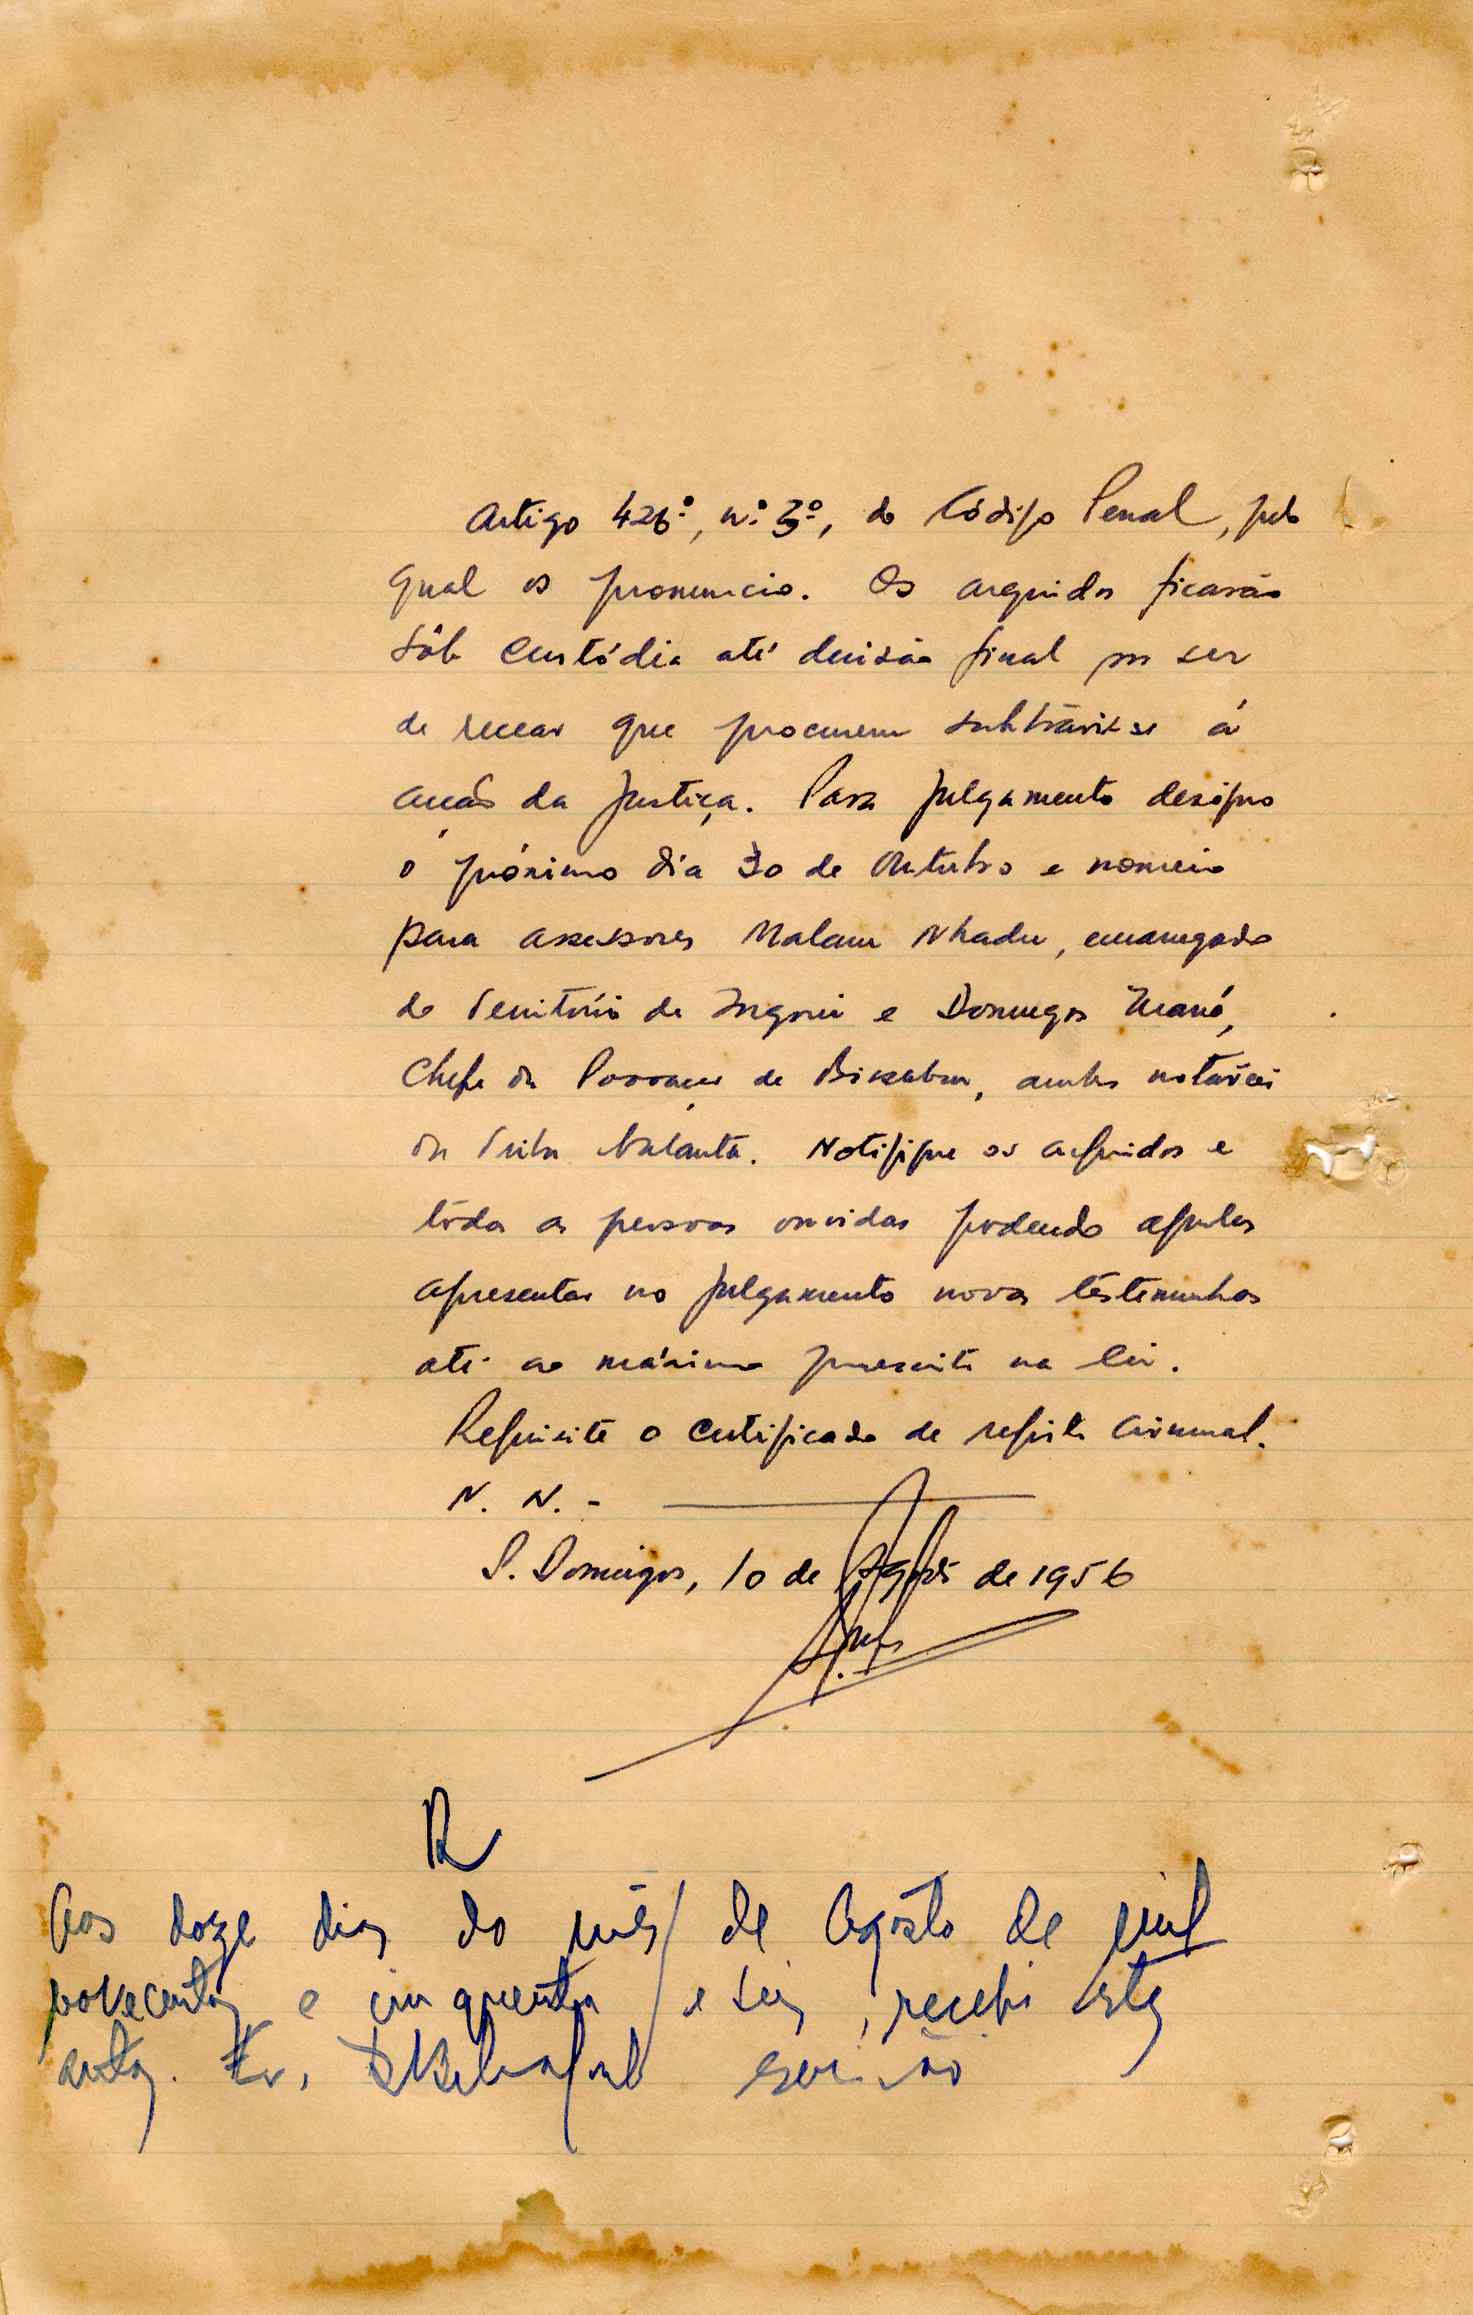 Artigo 426º, nº 3º, do Código Penal, pelo
qual os pronuncio. Os arguidos ficarão
sôb custódia até decisão final por ser
de recear que procurem subtrairse á
acção da justiça. Para julgamento designo
o próximo dia 30 de Outubro e nomeio
para assessores Malam Nhadu, encarregado
do Território de Ingoré e Domingos Mané,
Chefe da Povoação de , ambos notáveis
da tribu balanta. Notifique os arguidos e
tôdas as pessoas ouvidas podendo aqueles
apresentar no julgamento novas testemunhas
até ao máximo prescrito na lei.
Requisite o certificado de registo criminal.
N. N. -
S. Domingos, 10 de Agosto de 1956
R
Aos doze dias do mês de Agôsto de mil
novecentos e cinquenta e seis, recebi estes
autos. Eu, escrivão